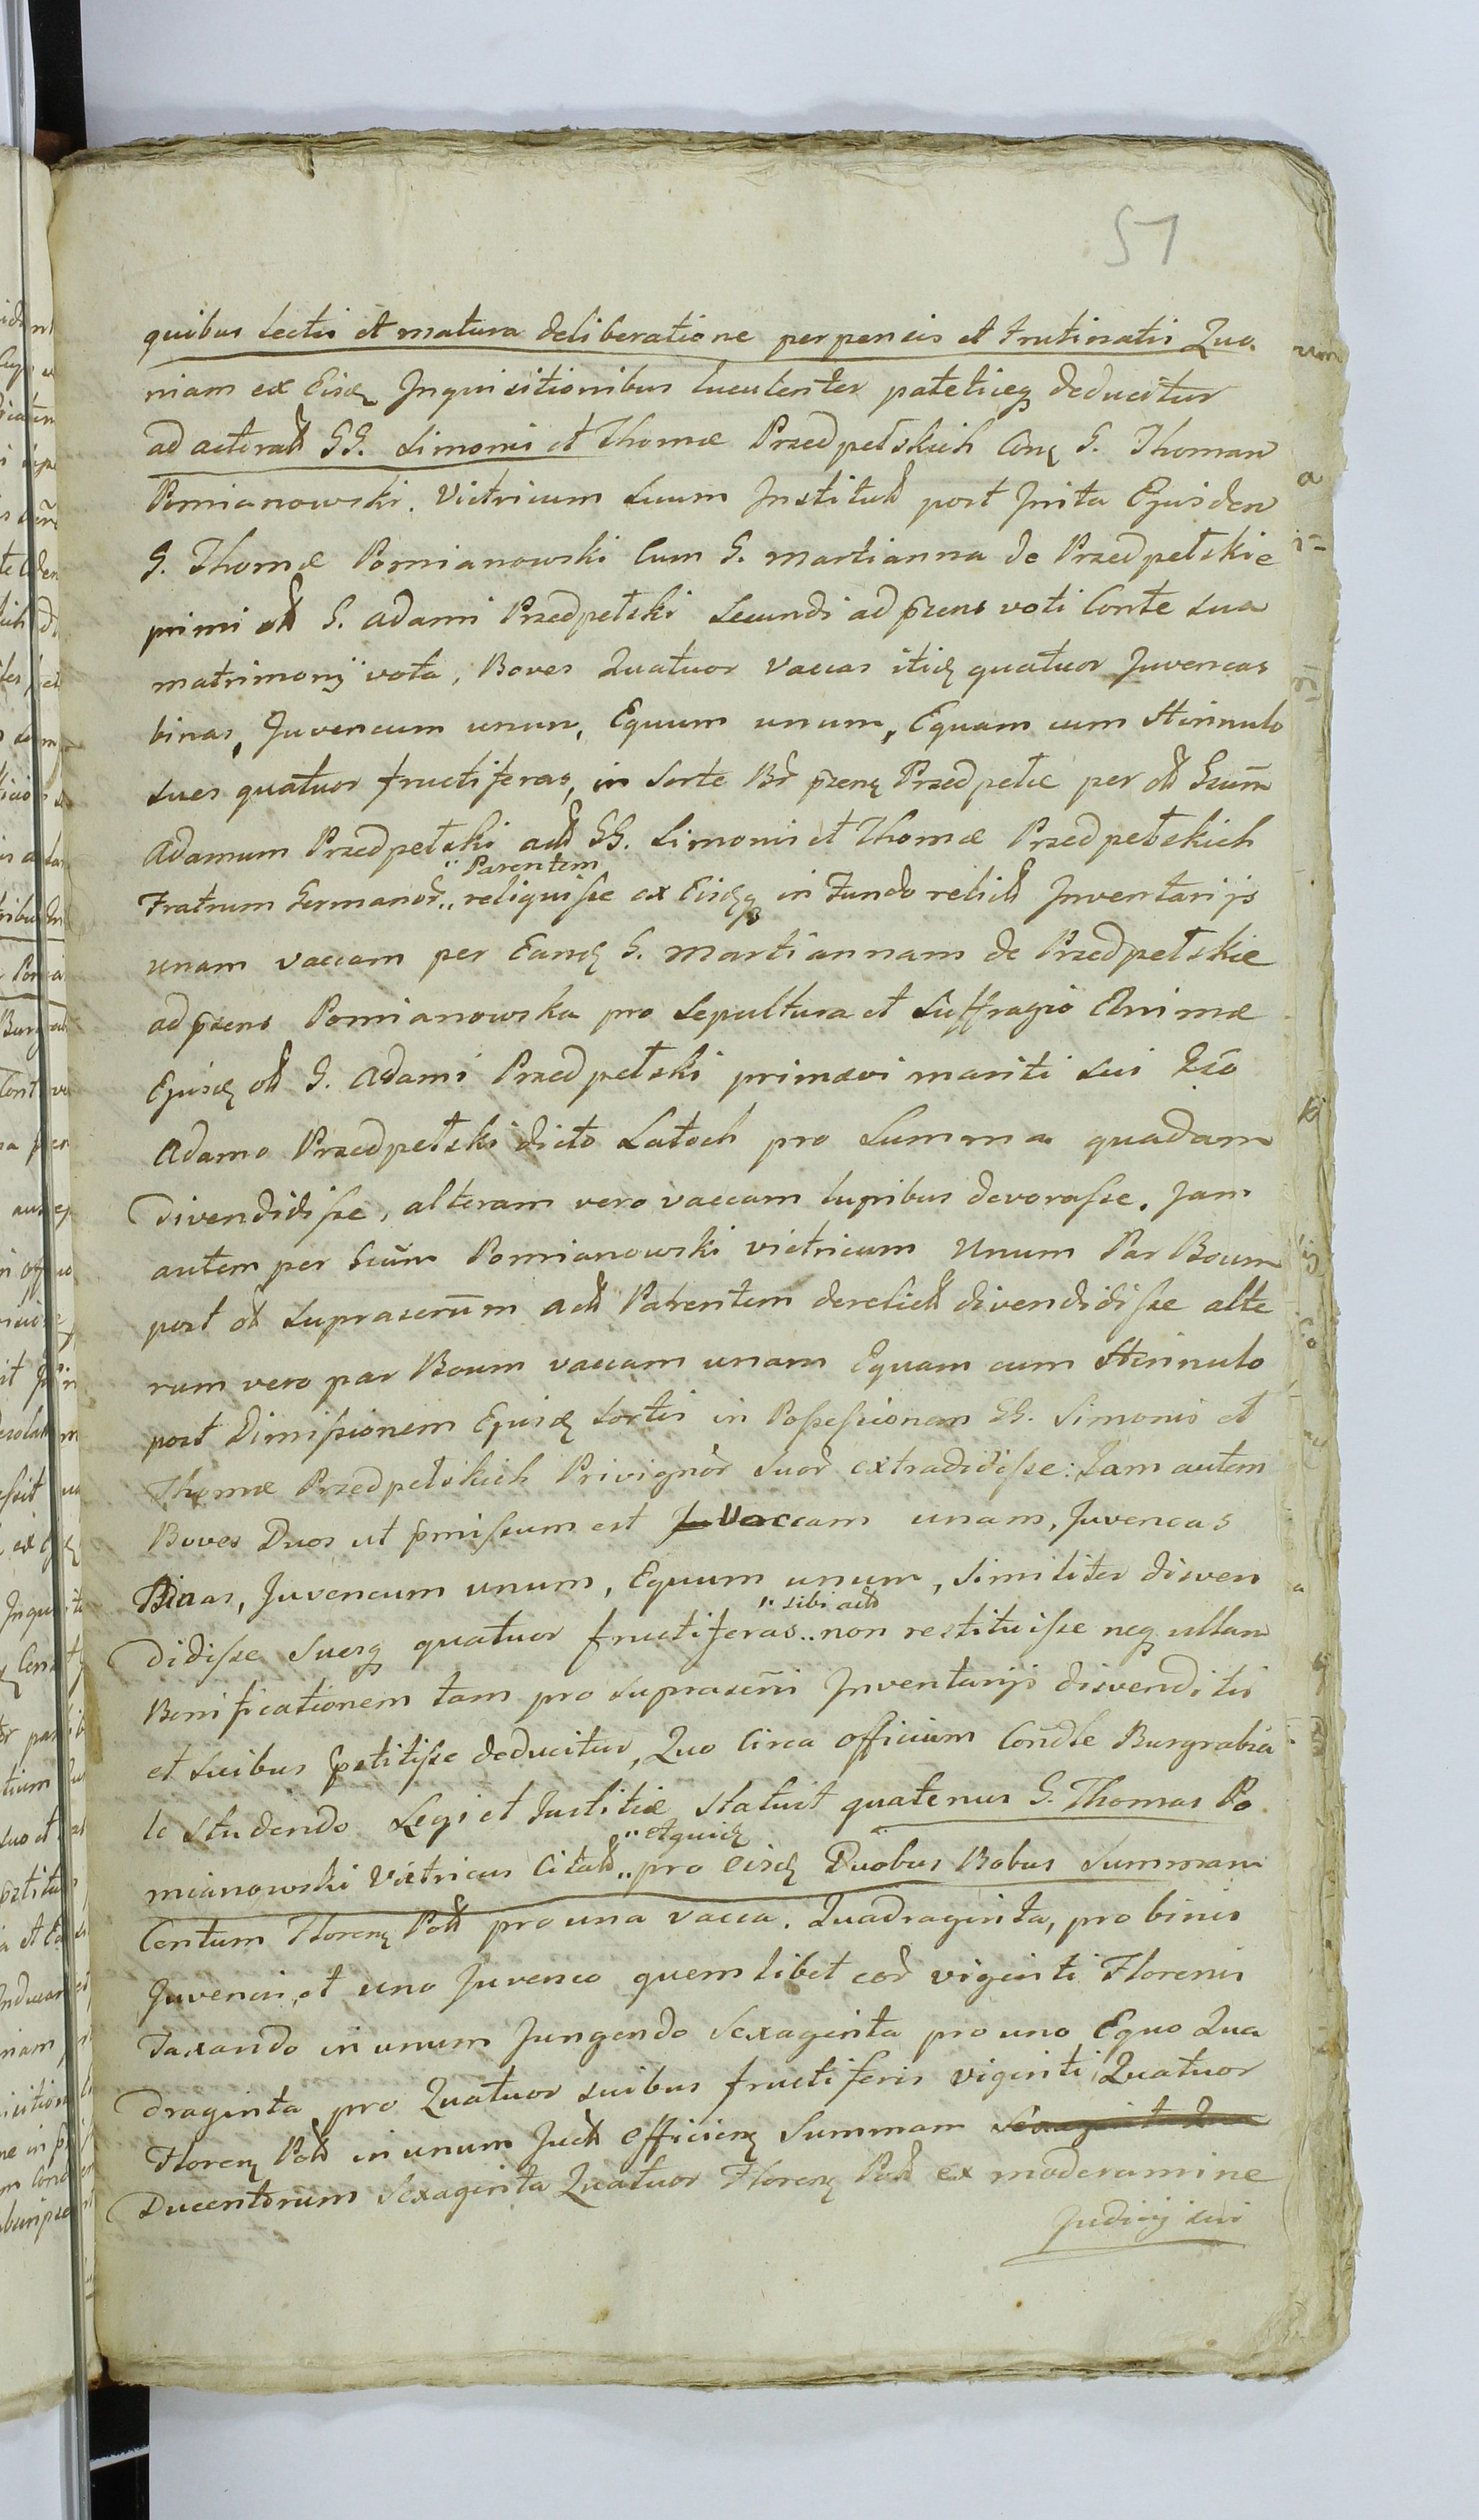 51
quibus Lectis et matura deliberatione perpensis et trutinatis Quo
niam ex Eisd Inquisitionibus luculenter pateticeq deducitur
ad actorat GG. Simonis et Thomæ Przedpełskich Conq G. Thomam
Pomianowski Victricum Suum Institut post Inita Ejusdem
G. Thomæ Pomianowski Cum G. Martianna de Przedpełskie
primi olt G. Adami Przedpełski Secundi ad prens voti Conte sua
matrimonÿ vota, Boves Quatuor Vaccas itid quatuor Juvencas
binas, Juvencum unum, Equum unum, Equam cum Hinnulo
sues quatuor fructiferas, in Sorte Br prenq Przedpełce per olt Grum
Adamum Przedpełski act GG. Simonis et Thomæ Przedpełskich
Fratrum Germanor .. reliquisse ex Eisdq in Fundo relict Inventarijs
" Parentem
unam vaccam per Eand G. Martiannam de Przedpełskie
ad prens Pomianowska pro Sepultura et Suffragio Animæ
Ejusd olt G. Adami Przedpełski primævi mariti sui Gso
Adamo Przedpełski dicto Latoch pro Summa quadam
divendidisse, alteram vero vaccam lupibus devorasse. Jam
autem per Grum Pomianowski victricum Unum Par Boum
post olt Suprascrum act Parentem derelict divendidisse alte
rum vero par Boum vaccam unam Equam cum Hinnulo
post Dimissionem Ejusd Sortis in Possessionem GG. Simonis et
Thomæ Przedpełskich Privignor Suor extradidisse: Jam autem
Boves Duos ut pmissum est Ju Vaccam unam, Juvencas
Binas, Juvencum unum, Equum unum, Similiter disven
didisse Suesq quatuor fructiferas .. non restituisse neq ullam
" sibi act
Bonificationem tam pro suprascni Inventarijs disvenditis
et suibus pstitisse deducitur, Quo Circa officium Condle Burgrabia
le studendo Legi et Justitiæ statuit quatenus G. Thomas Po
mianowski Victricus Citat .. pro eisd Duobus Bobus Summam
" et quid
Centum Florenq Polt pro una vacca. Quadraginta, pro binis
Juvencis, et uno Juvenco quemlibet eor viginti Florenis
Taxando in unum Jungendo Sexaginta pro uno Equo Qua
draginta pro Quatuor suibus fructiferis viginti Quatuor
Florenq Polt in unum Juct efficienq Summam Sexagint Qua
Ducentorum Sexaginta Quatuor Florenq Polt ex moderamine
Judicij sui